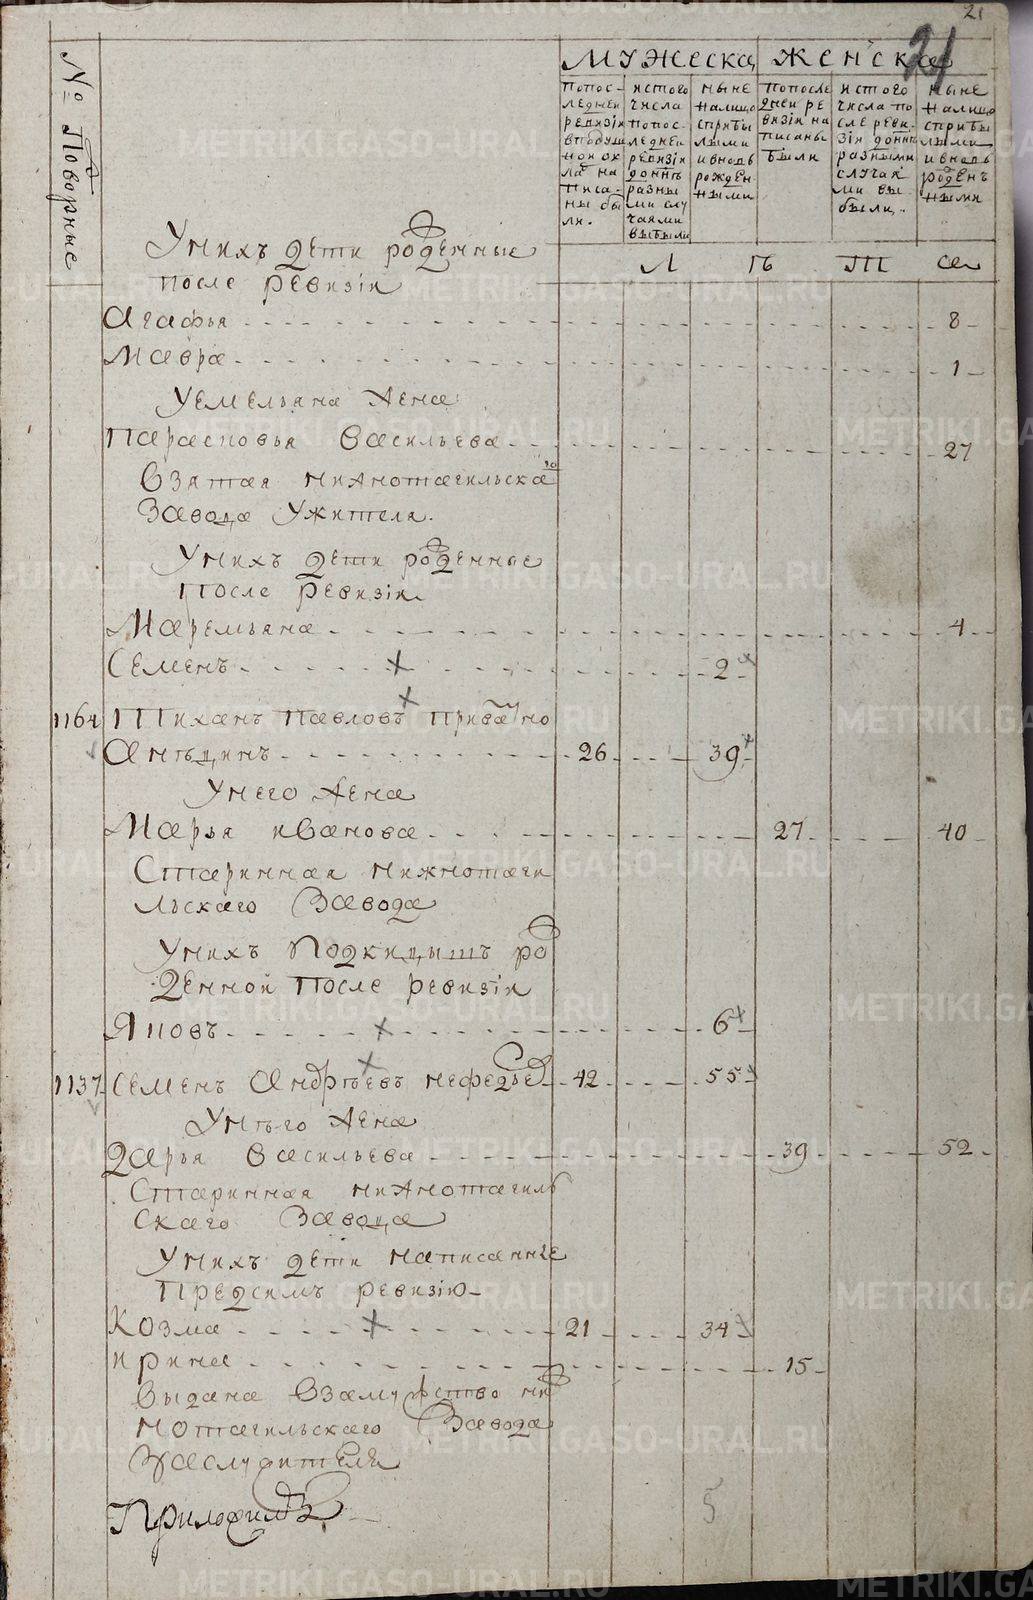 21
21
№ Подворные
МУЖЕСКА
ЖЕНСКА
попос-
ледней
ревизiи
в подуш
ной ок
лад на
писа-
ны бы
ли.
ис того
числа
попос-
ледней
ревизiи
донынѣ
разны
ми слу
чаями
выбыли
ныне
налицо
с прибы
лыми
и вновь
рожден
ными
по после
дней ре
визiи на
писаны
были
ис того
числа по
сле реви-
зiи донынѣ
разными
случая
ми вы
были.
ныне
налицо
с прибы
лыми
и вновь
рожденъ
ными
Лѣта
У нихъ дети рожденные
после ревизiи
Агафья 8
Мавра 1
У Емельяна жена
Парасковья Васильева 27
взятая нижнотагильска го
завода у жителя.
У нихъ дети рожденные
после ревизiи
Маремьяна 4
Семенъ 2
1164 Тиханъ Павловъ
26 39
У него жена
Марья Иванова 27 40
Старинная нижнотаги
льскаго завода
У нихъ подкидышъ ро
жденной после ревизiи
Яковъ 6
1137 Семенъ Андрѣевъ Нефедьев 42 55
У нѣго жена
Дарья Васильева 39 52
Старинная нижнотагиль
скаго завода
У нихъ дети написанные
пред симъ ревизiю
Козма 21 34
Ирина 15
выдана взамужство ниж
нотагильскаго завода
за служителя
Приложилъ
5
METRIKI.GASO-URAL.RU